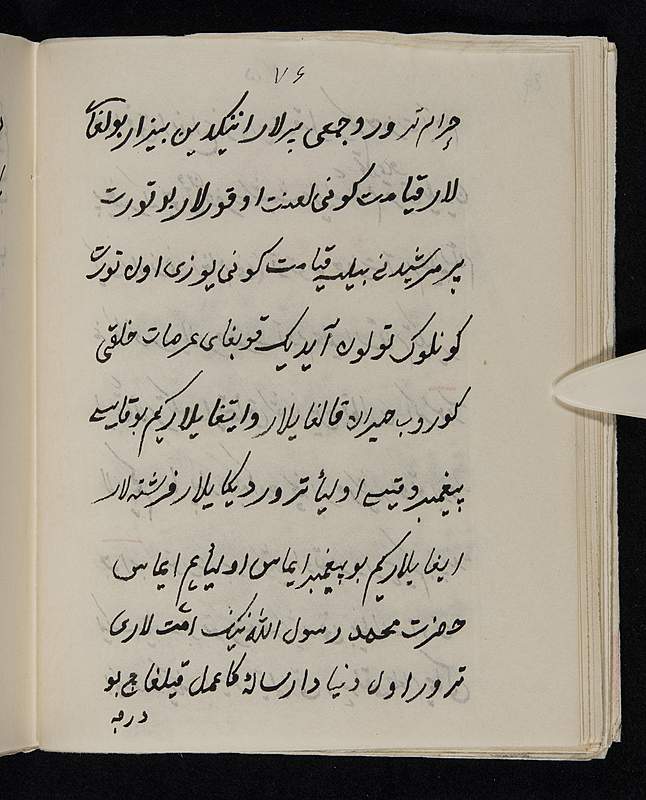 ۷۶
حرام تورور و جمعی پیرلار انینکدین بیزار بولغای
لار قیامت کونی لعنت اوقورلار بو تورت
پیر مرشیدنی بیلسه قیامت کونی یوزی اون تورت
کونلوک تولون آیدیک قوبغای عرصات خلقی
کوروب حیران قالغایلار و ایتغایلار کیم بو قایسی
پیغمبر و قیسی اولیأ ترور دیکایلار فرشته لار
ایغایلار کیم بو پیغمبر ایماس اولیأ هم ایماس
حضرت محمد رسول الله نینک امت لاری
ترور اول دنیادا رساله کا عمل قیلغاچ بو
درجه